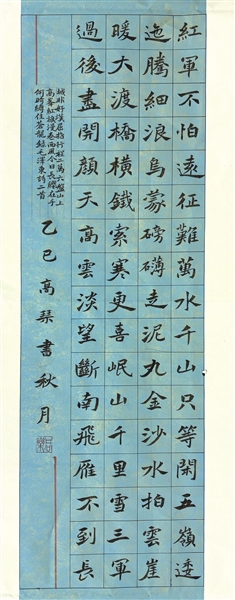 紅軍不怕遠征難萬水千山只等閑五嶺逶
迤騰細浪烏蒙磅礴走泥丸金沙水拍雲崖
暖大渡橋橫鐵索寒更喜岷山千里雪三軍
過後盡開顏天高雲淡望斷南飛雁不到長
城非好漢屈指行程二萬六盤山上
高峯紅旗漫卷西風今日長纓在手
何時縛住蒼龍錄毛澤東詩二首
乙巳高琹書秋月